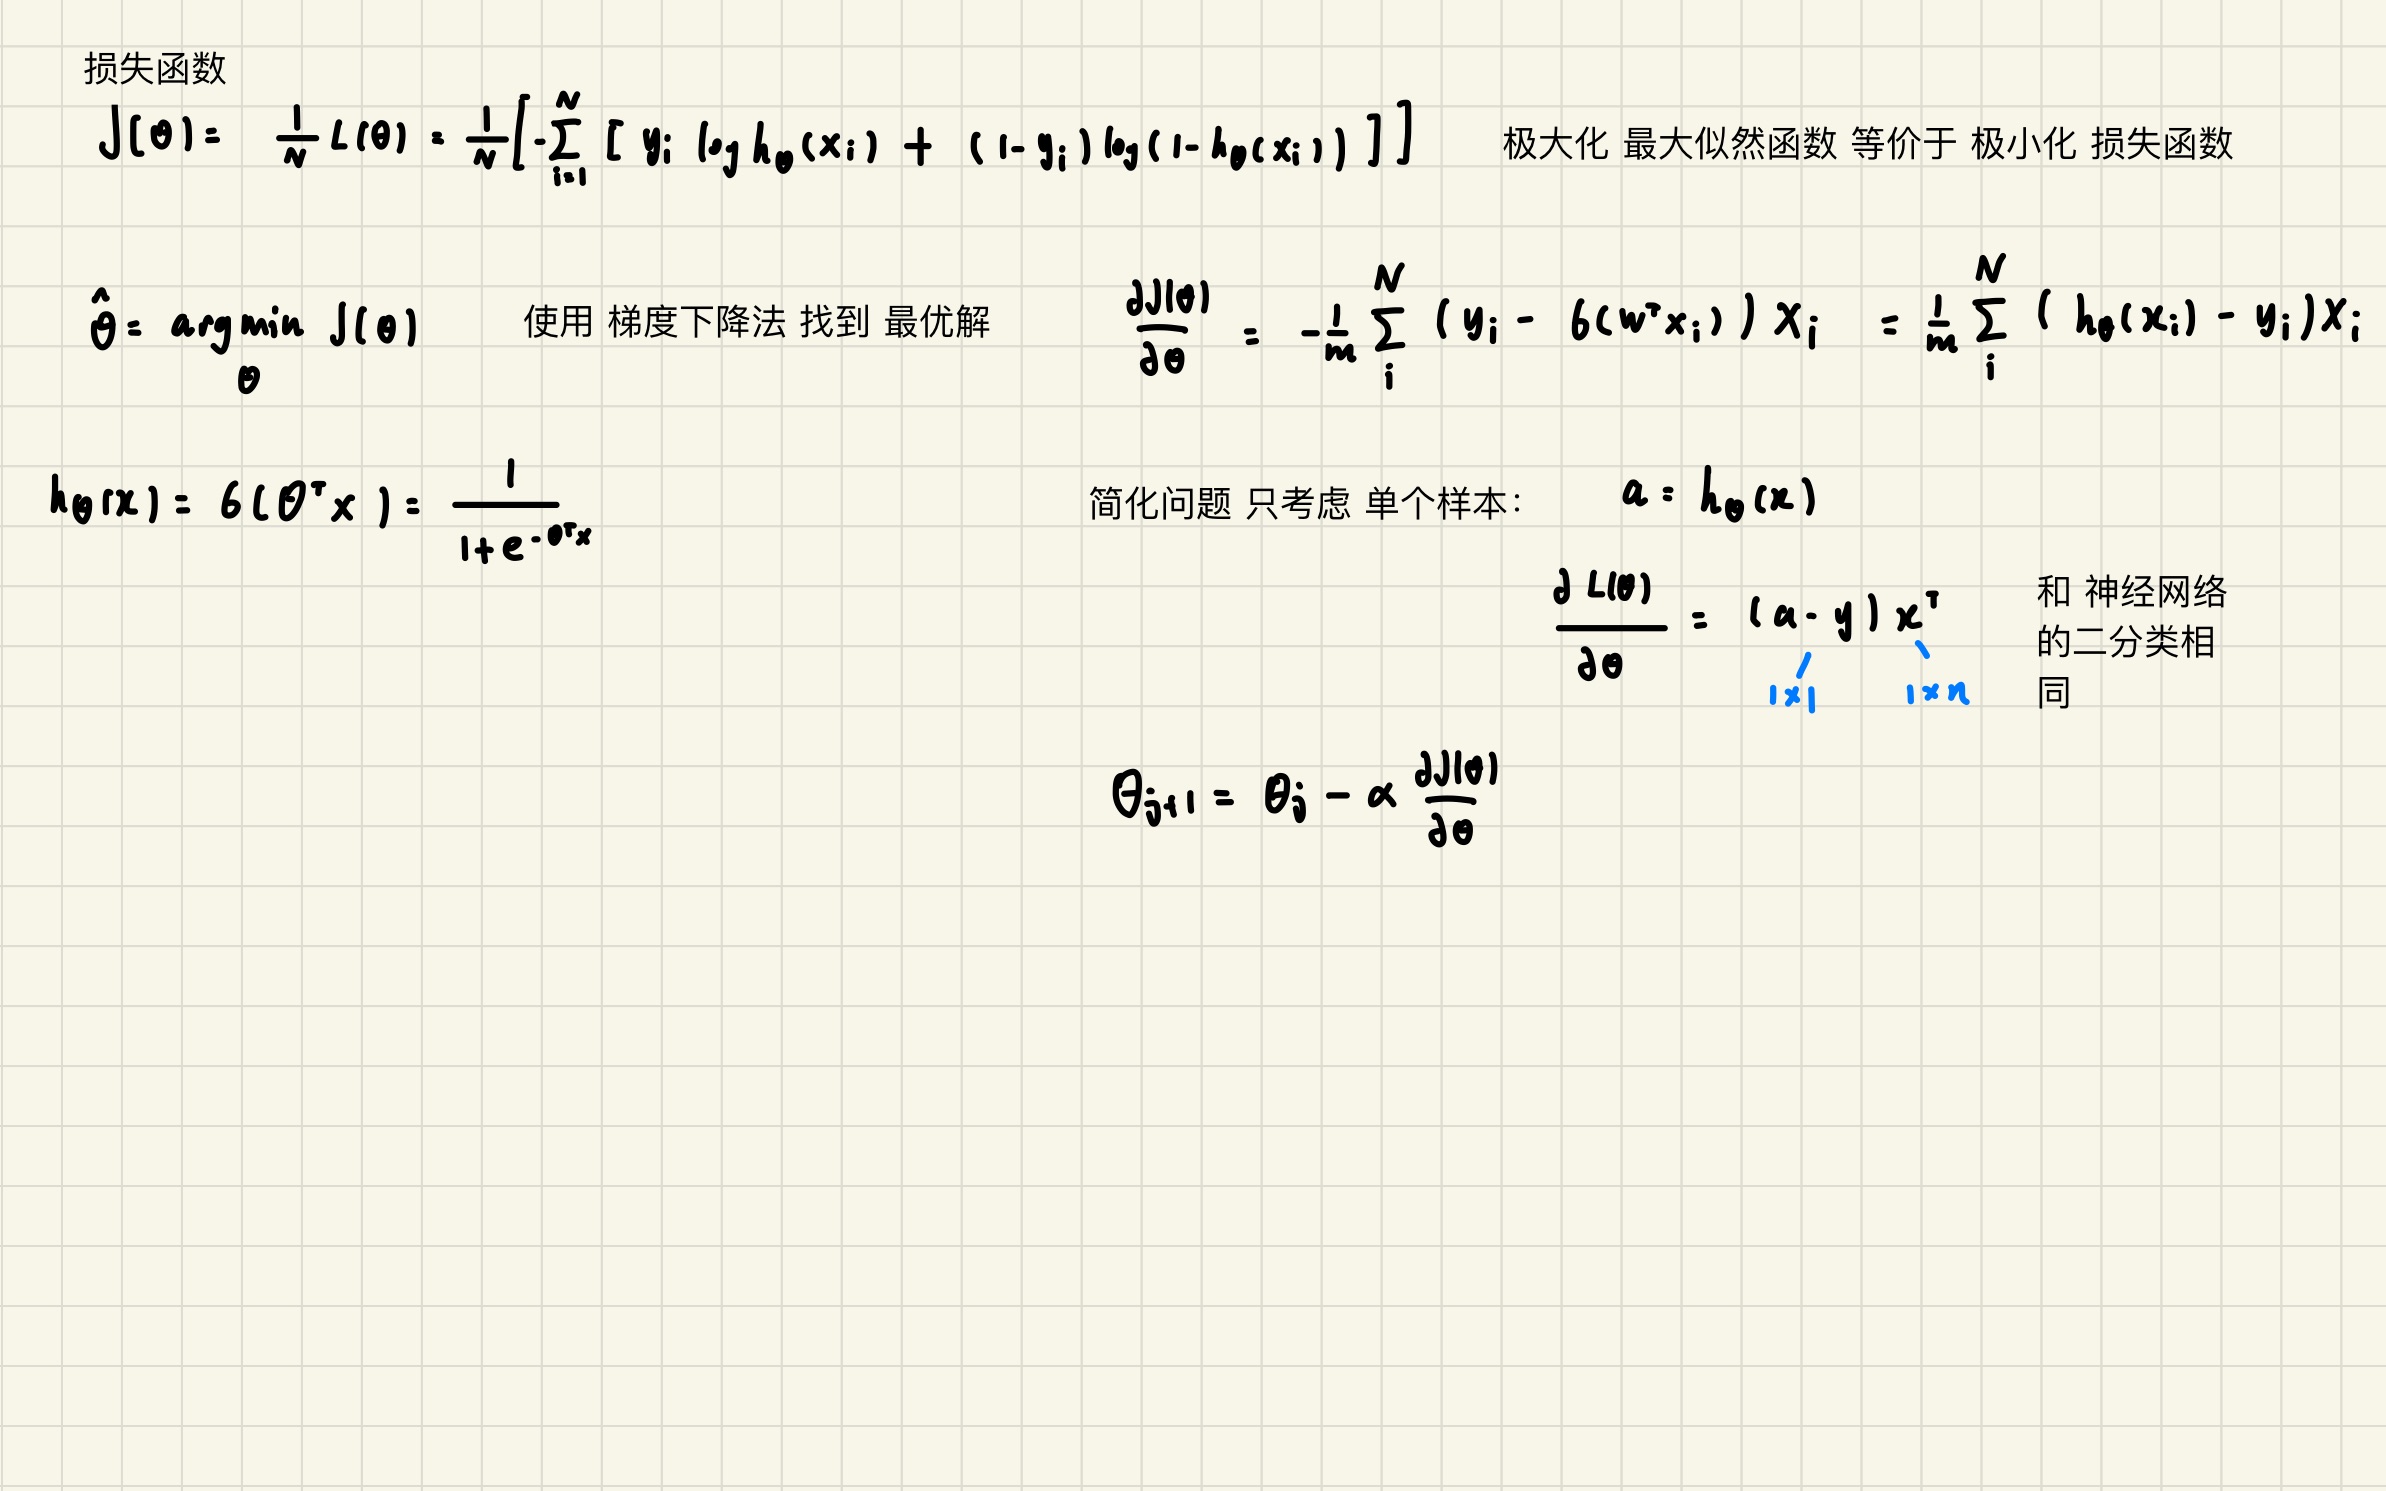 损失函数
J(θ) = 1/N L(θ) = 1/N [-∑_{i=1}^{N} [ y_i log h_θ(x_i) + (1-y_i) log(1-h_θ(x_i)) ] ] 极大化 最大似然函数 等价于 极小化 损失函数
θ̂ = argmin_θ J(θ) 使用 梯度下降法 找到 最优解 ∂J(θ)/∂θ = -1/m ∑_i^N (y_i - б(w^T x_i)) x_i = 1/m ∑_i^N (h_θ(x_i) - y_i) x_i
h_θ(x) = б(θ^T x) = 1/(1+e^{-θ^T x}) 简化问题 只考虑 单个样本： a = h_θ(x)
∂L(θ)/∂θ = (a-y) x^T
1×1 1×n
和 神经网络
的二分类相
同
θ_{j+1} = θ_j - α ∂J(θ)/∂θ